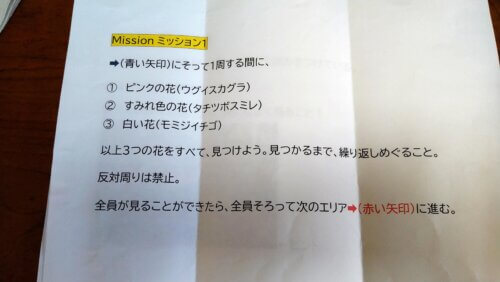 Mission ミッション1
➡(青い矢印)にそって1周する間に、
① ピンクの花(ウグイスカグラ)
② すみれ色の花(タチツボスミレ)
③ 白い花(モミジイチゴ)
以上3つの花をすべて、見つけよう。見つかるまで、繰り返しめぐること。
反対周りは禁止。
全員が見ることができたら、全員そろって次のエリア➡(赤い矢印)に進む。